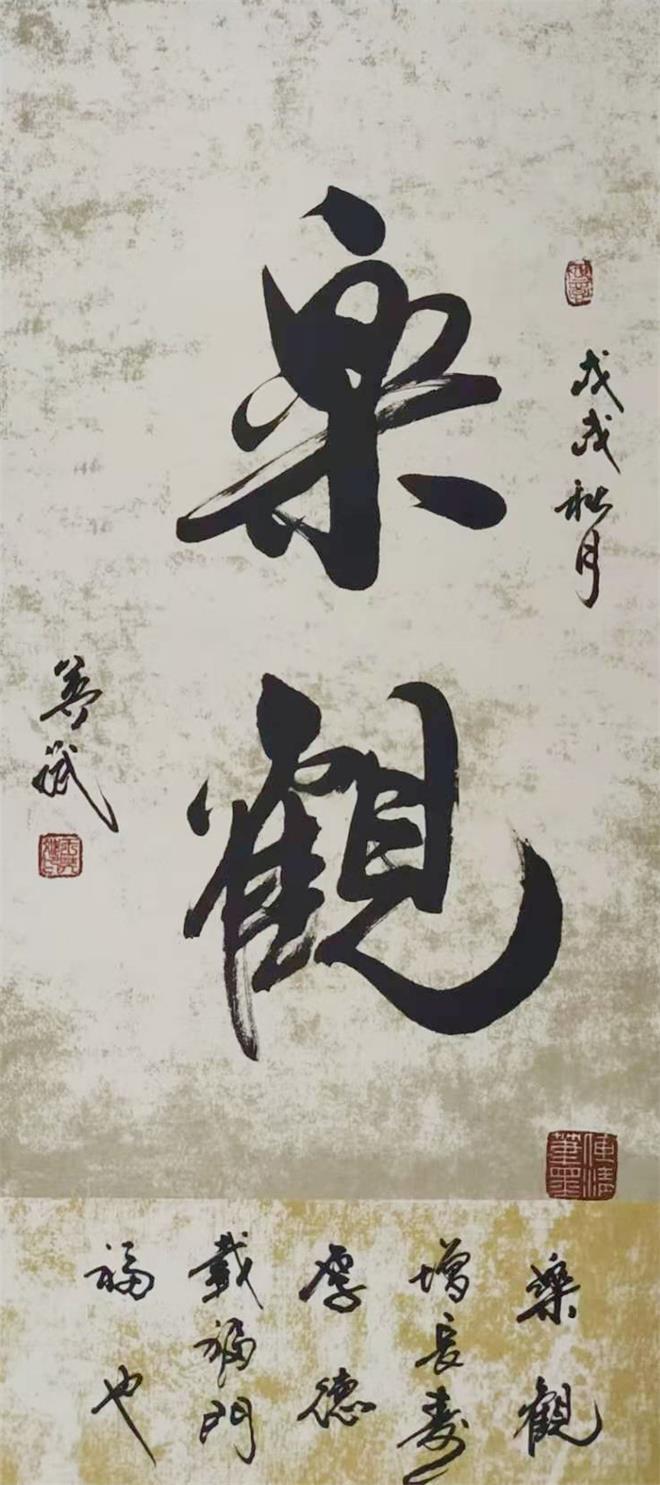 樂觀
戊戌秋月
樂觀
增長壽
厚德
載福門
福也